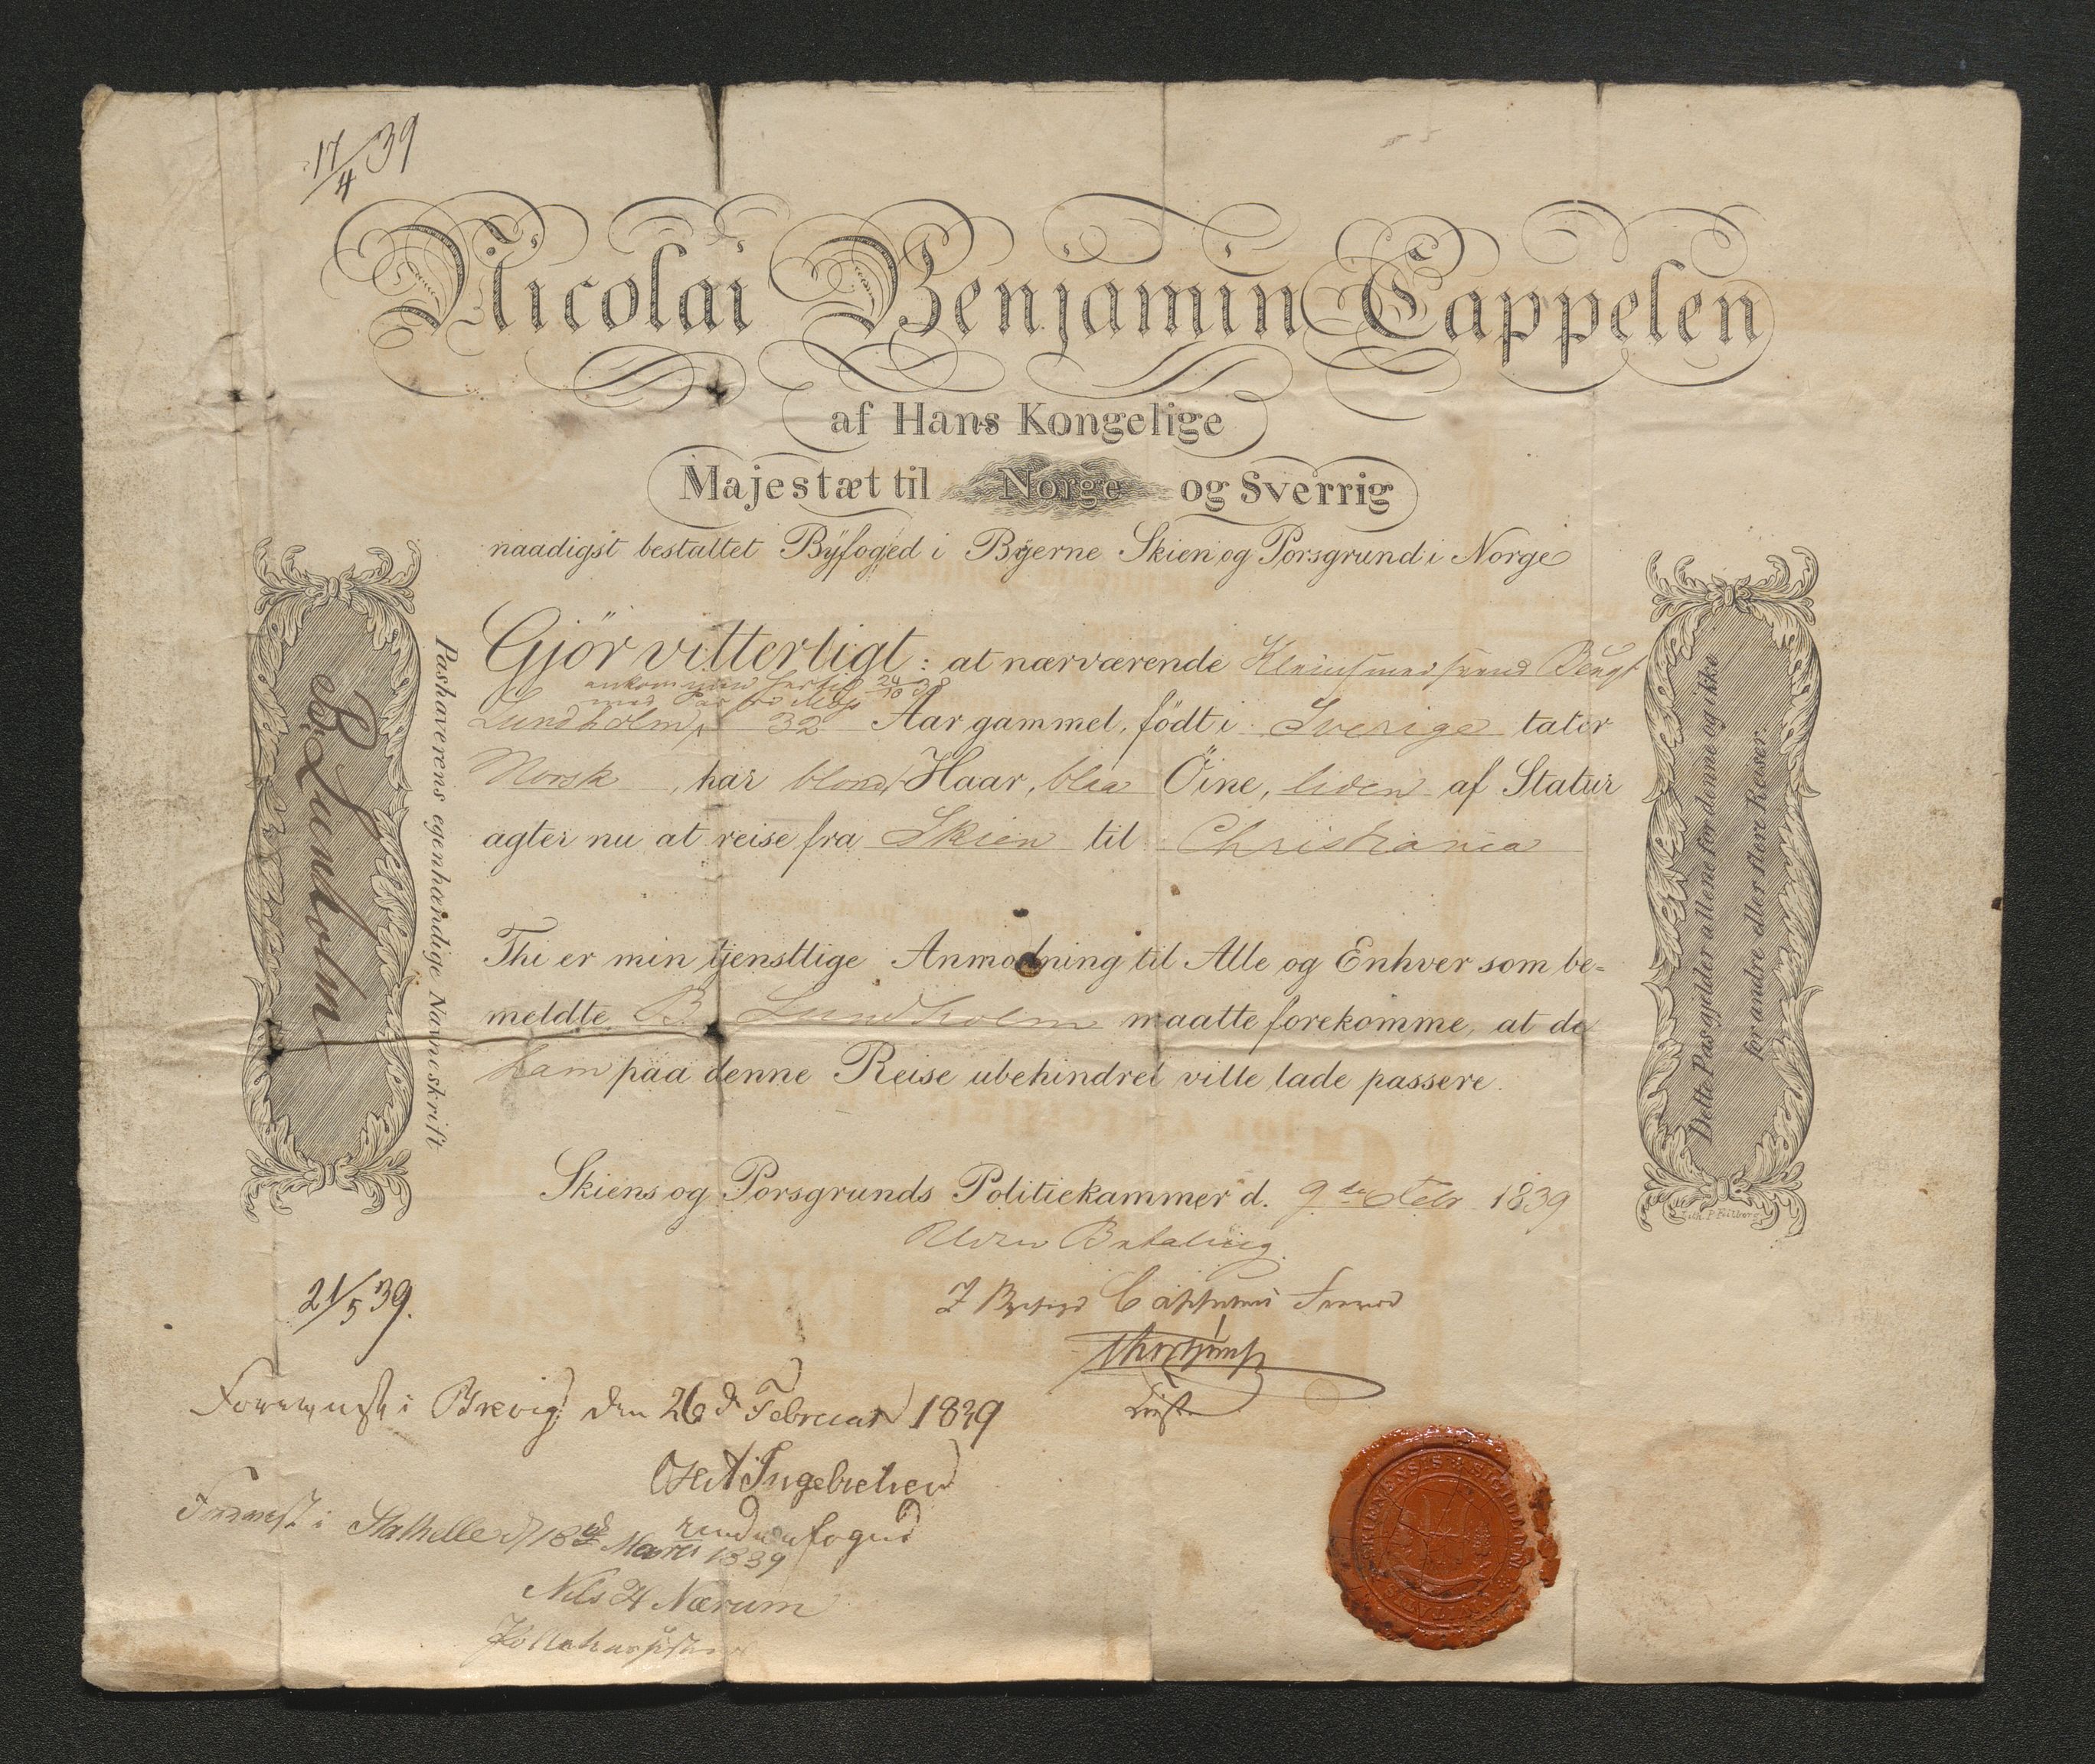 17/4 39
Nicolai Benjamin Cappelen
af Hans Kongelige
Majestæt til Norge og Sverrig
naadigst bestaltet Byfoged i Byerne Skien og Porsgrund i Norge
Gjör vitterligt: at nærværende Kleinsmedsvend Bengt
ankommen hertil 24/10 38
med Pas fra
Lundholm, 32 Aar gammel, födt i Sverige taler
Norsk, har blond Haar, blaa Öine, liden af Statur
agter nu at reise fra Skien til Christiania
Thi er min tjenstlige Anmodning til Alle og Enhver som be-
meldte B. Lundholm maatte forekomme, at de
ham paa denne Reise ubehindret ville lade passere.
Skiens og Porsgrunds Politiekammer d. 9de Febr 1839
Uden Betaling.
Cappelens
Pashaverens egenhændige Navneskrift
B. Lundholm
Dette Pas gjelder allene for denne og ikke
for andre eller flere Reiser.
21/5 39.
Foreviist i Brevig den 26de Februar 1839
Ingebretsen
Foreviist i Stathelle d 18de Marts 1839
Nils H Nærum
SKIENENSIS SIGILLUM CIVITATIS